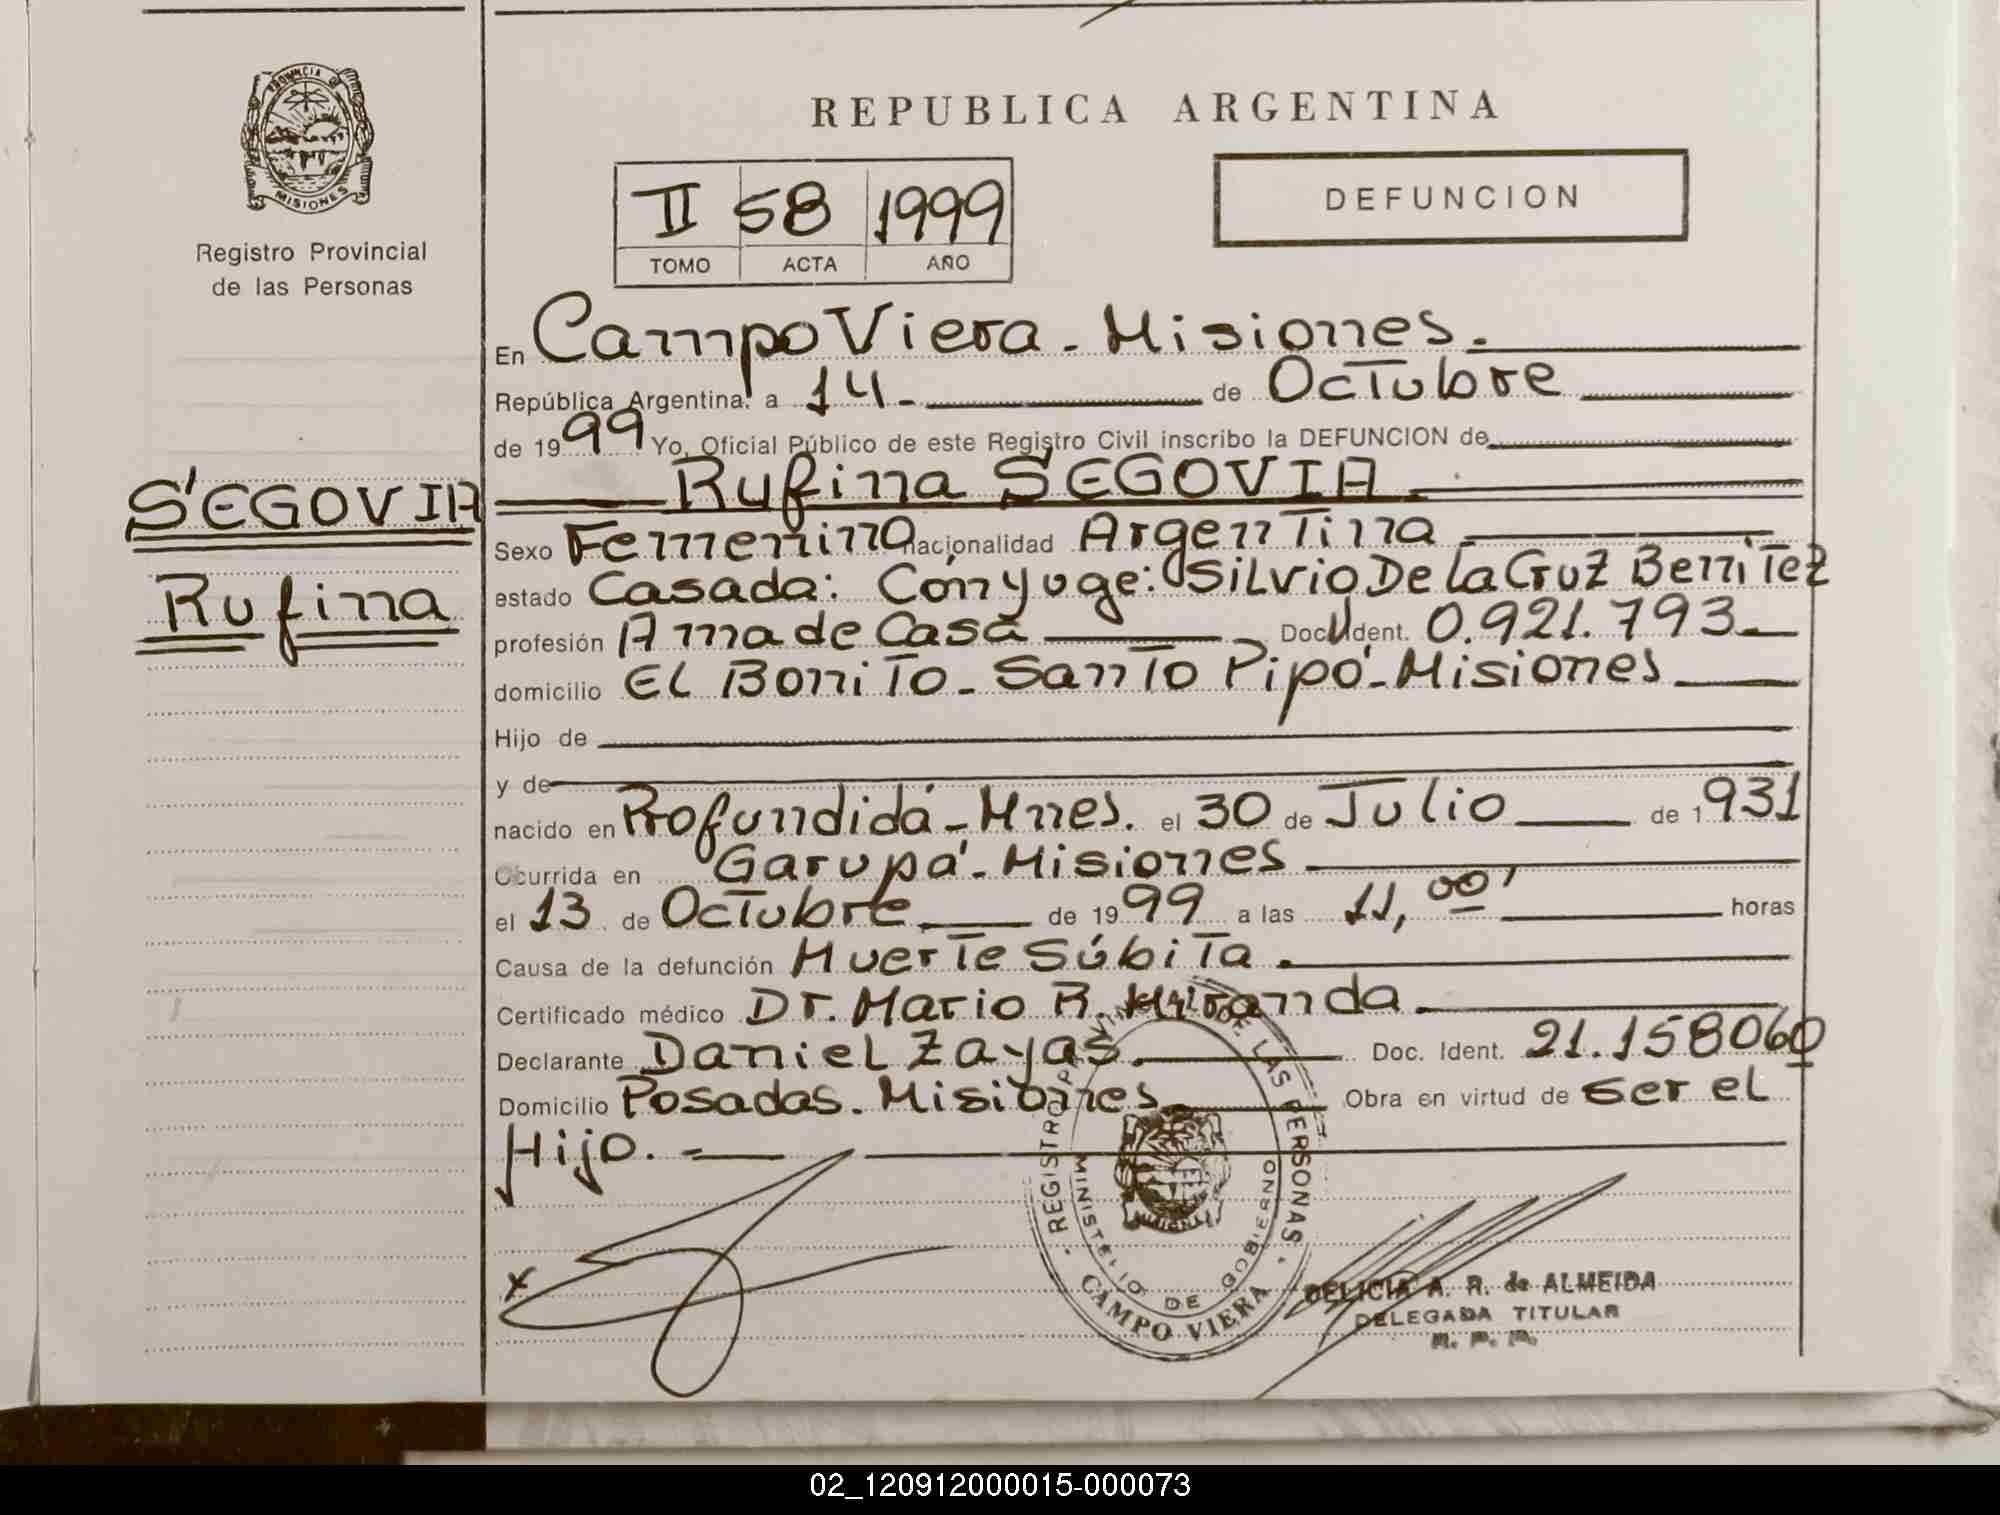 PROVINCIA DE
MISIONES
Registro Provincial
de las Personas
SEGOVIA
Rufina
REPUBLICA ARGENTINA
II 58 1999
TOMO ACTA AÑO
DEFUNCION
En Campo Viera - Misiones.
República Argentina, a 14 - de Octubre
de 19 99 Yo, Oficial Público de este Registro Civil inscribo la DEFUNCION de
Rufina SEGOVIA
Sexo Femenina nacionalidad Argentina
estado Casada: Cónyuge: Silvio De la Cruz Benitez
profesión Ama de Casa Doc. Ident. 0.921.793
domicilio El Bonito - Santo Pipó - Misiones
Hijo de
y de
nacido en Profundidá - Mnes. el 30 de Julio de 1931
Ocurrida en Garupá - Misiones
el 13 de Octubre de 19 99 a las 11,00' horas
Causa de la defunción Muerte Súbita.
Certificado médico Dr. Mario R. Miranda
Declarante Daniel Zayas. Doc. Ident. 21.158060
Domicilio Posadas. Misiones Obra en virtud de ser el
Hijo. -
x
DE LAS PERSONAS
MINISTERIO DE GOBIERNO
CAMPO VIERA
DELICIA A. R. de ALMEIDA
DELEGADA TITULAR
R. P. P.
02_120912000015-000073